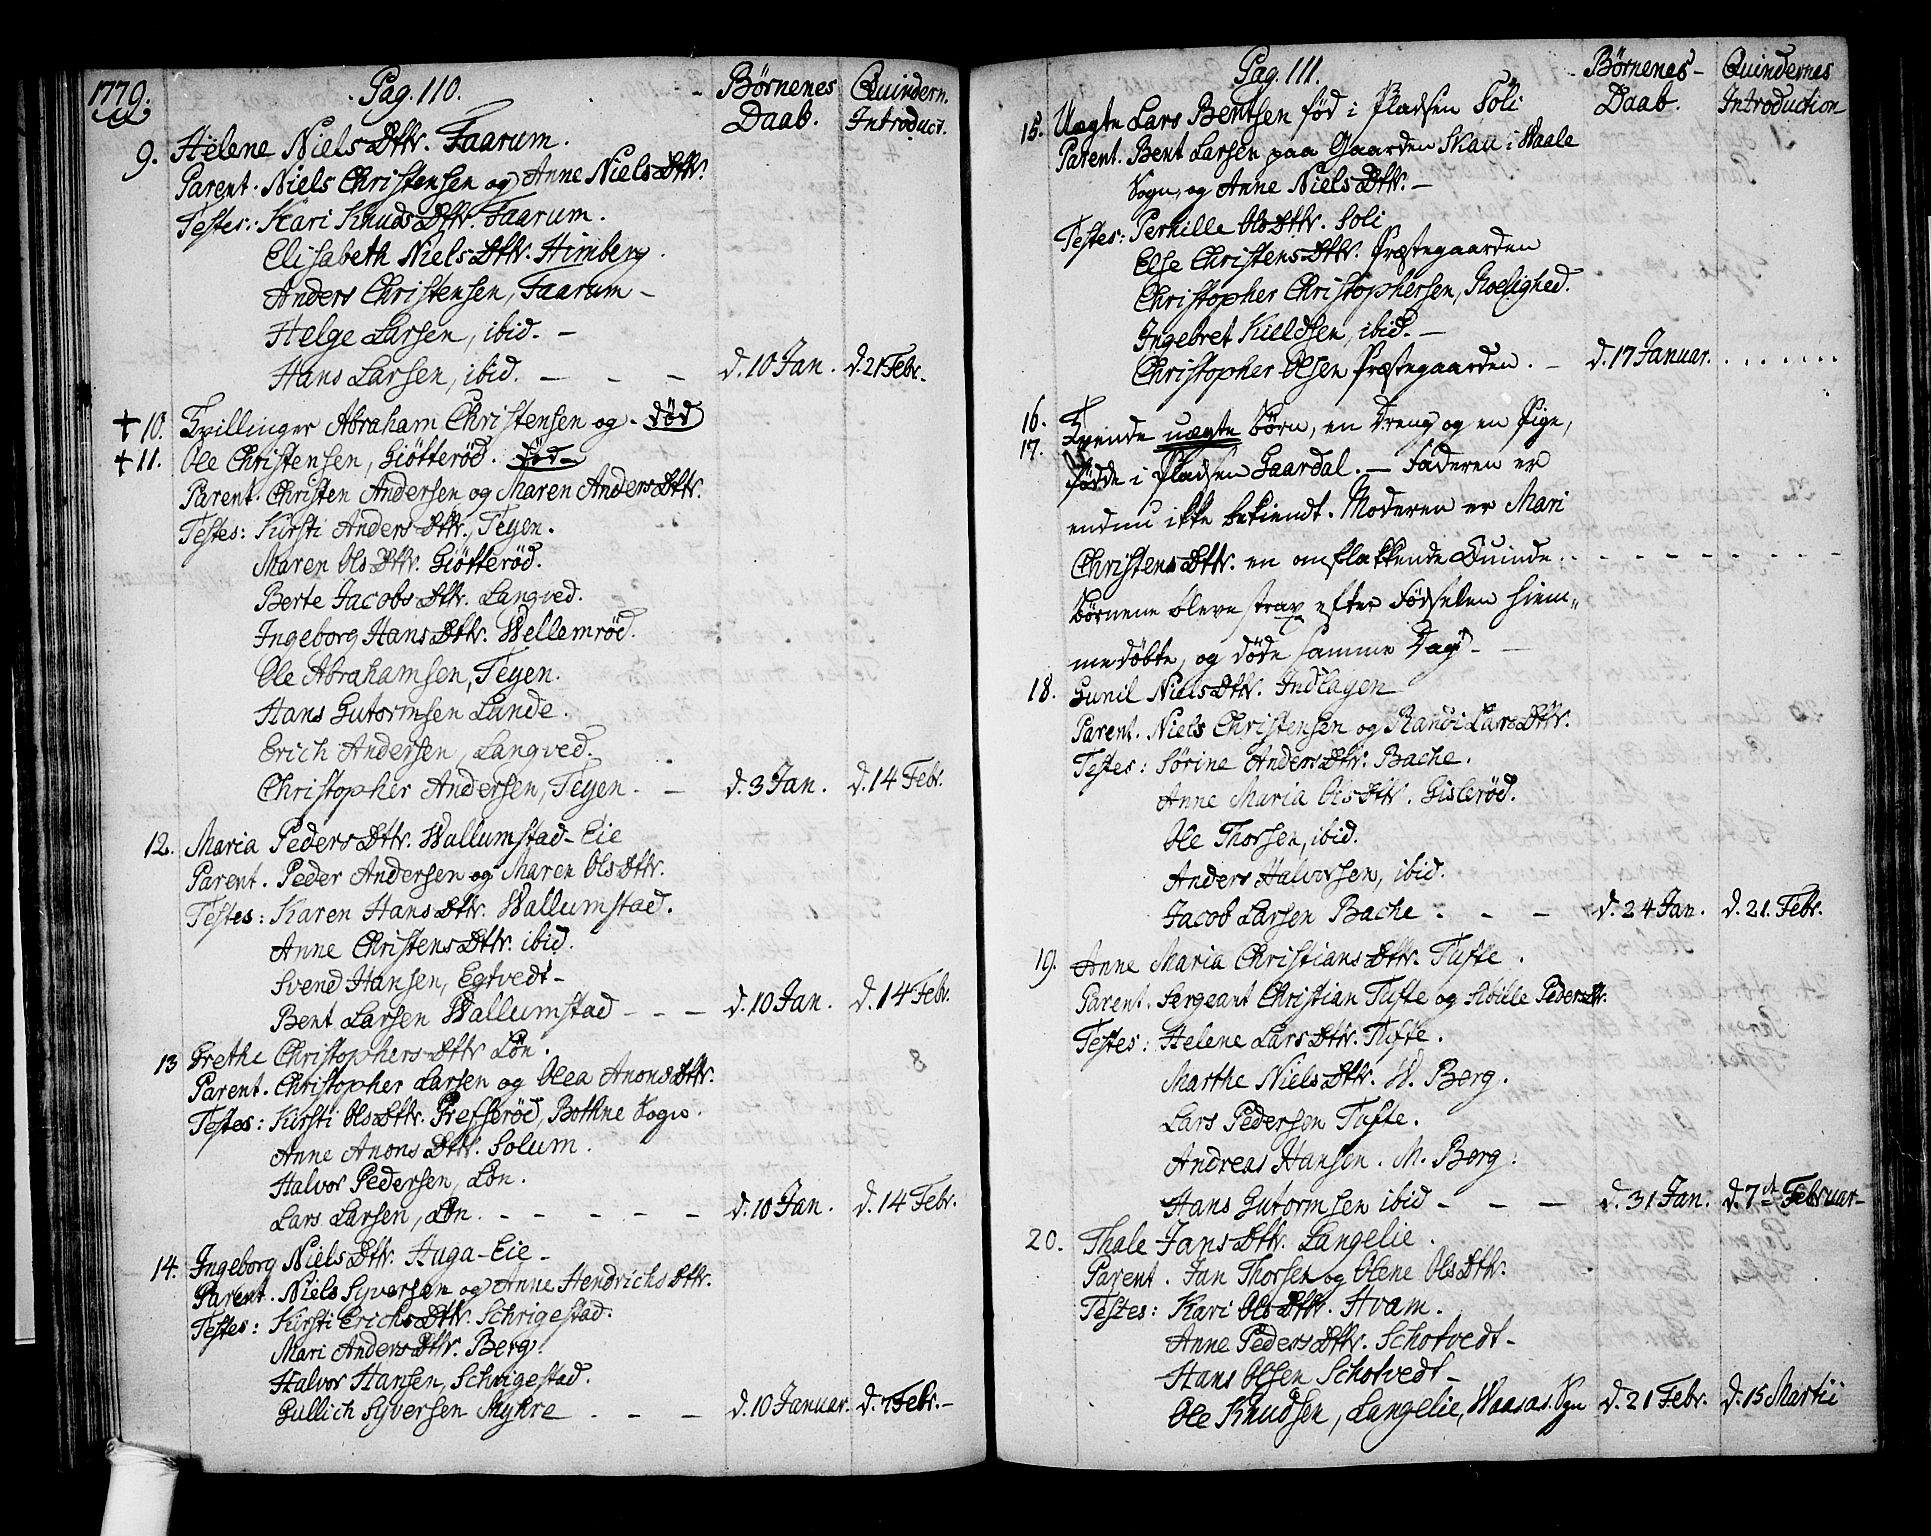 1779.
Pag. 110.
Børnenes Daab.
Quindern. Introduct.
9. Helene Niels Dttr. Faarum.
Parent. Niels Christensen og Anne Niels Dttr.
Testes: Kari Knuds Dttr. Faarum.
Elisabeth Niels Dttr. Himberg.
Anders Christensen, Faarum –
Helge Larsen, ibid. –
Hans Larsen, ibid. – – – d. 10 Jan. d. 21 Febr.
† 10. Tvillinger Abraham Christensen og . død
† 11. Ole Christensen, Giötteröd. død
Parent. Christen Andersen og Maren Anders Dttr.
Testes: Kirsti Anders Dttr. Teyen.
Maren Ols Dttr. Giötteröd.
Berte Jacobs Dttr. Langved.
Ingeborg Hans Dttr. Wellemröd.
Ole Abrahamsen, Teyen.
Hans Gutormsen Lunde.
Erich Andersen, Langved.
Christopher Andersen, Teyen. – d. 3 Jan. d. 14 Febr.
12. Maria Peders Dttr. Wallumstad-Eie
Parent. Peder Andersen og Maren Ols Dttr.
Testes: Karen Hans Dttr. Wallumstad.
Anne Christens Dttr. ibid.
Svend Hansen, Egtvedt –
Bent Larsen Wallumstad – – – d. 10 Jan. d. 14 Febr.
13 Grethe Christophers Dttr Lön.
Parent. Christopher Larsen og Olea Anons Dttr.
Testes: Kirsti Ols Dttr. Presseröd, Bothne Sogn.
Anne Anons Dttr. Solum.
Halvor Pedersen, Lön.
Lars Larsen, Lön. – – – – – d. 10 Jan. d. 14 Febr.
14. Ingeborg Niels Dttr. Huga-Eie –
Parent. Niels Syversen og Anne Hendrichs Dttr.
Testes: Kirsti Erichs Dttr. Schrigestad.
Mari Anders Dttr. Berg.
Halvor Hansen, Schrigestad.
Gullich Syversen Myhre – – – d. 10 Januar. d. 7 Febr. –
Pag. 111.
Børnenes Daab.
Quindernes Introduction
15. Uægte Lars Bentsen fød i Pladsen Soli
Parent. Bent Larsen paa Gaarden Skau i Waale
Sogn, og Anne Niels Dttr. –
Testes: Pernille Ols Dttr. Soli
Else Christens Dttr. Præstegaarden
Christopher Christophersen, Roelighed.
Ingebret Kieldsen, ibid. –
Christopher Olsen Præstegaarden. – d. 17 Januar. . . . . . .
16. Tvende uægte Børn, en Dreng og en Pige,
17. fødde i Pladsen Gaardal. – Faderen er
endnu ikke bekiendt. Moderen er Mari
Christens Dttr. en omflakkende Quinde. – – – – – – –
Børnene bleve strax efter Fødselen hiem„
medøbte, og døde samme Dag –
18. Gunil Niels Dttr. Indlagen
Parent. Niels Christensen og Randi Lars Dttr.
Testes: Sörine Anders Dttr. Bache.
Anne Maria Ols Dttr. Gisleröd.
Ole Thorsen, ibid.
Anders Halvorsen, ibid.
Jacob Larsen Bache . – – – d. 24 Jan. d. 21. Febr.
19. Anne Maria Christians Dttr. Tufte.
Parent. Sergeant Christian Tufte og Sibille Peders Dtr.
Testes: Helene Lars Dttr. Tufte.
Marthe Niels Dttr. W. Berg.
Lars Pedersen Tufte.
Andreas Hansen. M. Berg.
Hans Gutormsen ibid – – – d. 31 Jan. d. 7de Februar –
20. Thale Jans Dttr. Langelie.
Parent. Jan Thorsen og Olene Ols Dttr.
Testes: Kari Ols Dttr. Hvam.
Anne Peders Dttr. Schotvedt –
Hans Olsen Schotvedt –
Ole Knudsen, Langelie, Waasas. Sgn d. 21 Febr. d. 15 Martii